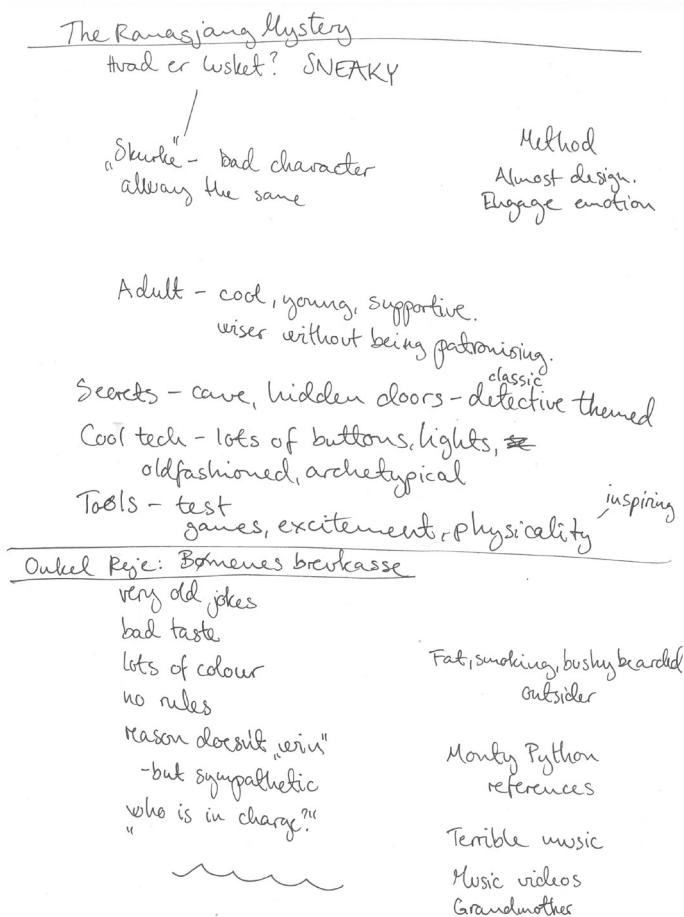 The Ramasjang Mystery
Hvad er lusket? SNEAKY
"Skurke" - bad character
allway the same
Method
Almost design.
Engage emotion
Adult - cool, young, supportive.
wiser without being patronising.
classic
Secrets - cave, hidden doors - detective themed
Cool tech - lots of buttons, lights,
oldfashioned, archetypical
Tools - test
inspiring
games, excitement, physicality
Onkel Reje: Børnenes brevkasse
very old jokes
bad taste
lots of colour
no rules
reason doesn't „win"
-but sympathetic
„who is in charge?"
Fat, smoking, bushybearded
outsider
Monty Python
references
Terrible music
Music videos
Grandmother